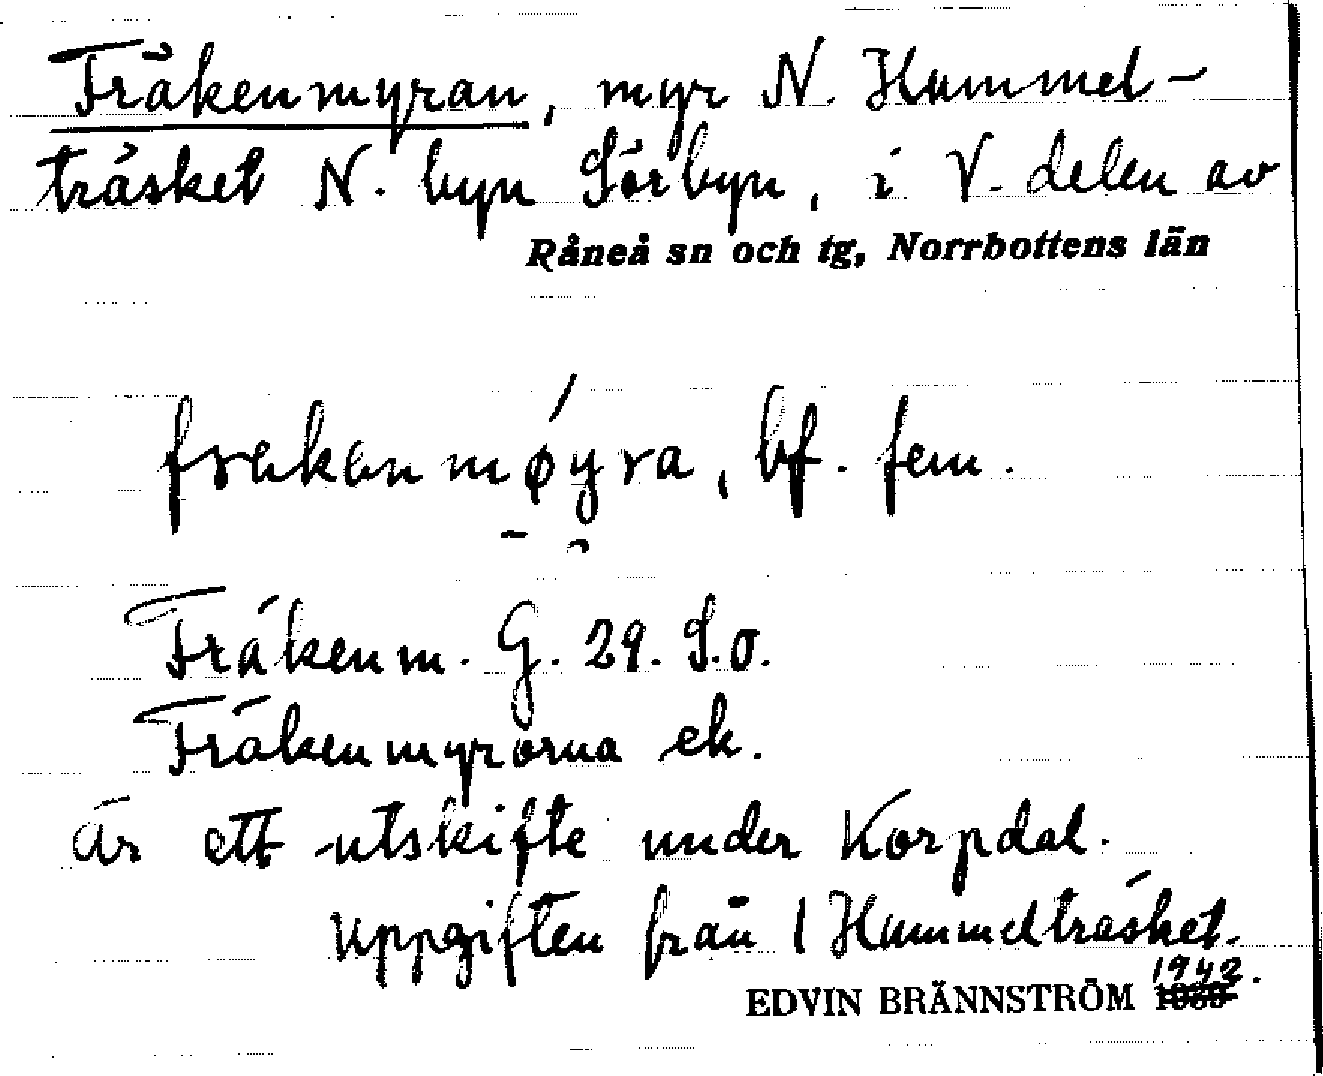 Fräkenmyran, myr N. Hummel-
träsket N. byn Sörbyn, i V. delen av
Råneå sn och tg, Norrbottens län
frakanmǿyra, bf. fem.
Fräkenm. G. 29. S.o.
Fräkenmyrorna ek.
Är ett utskifte under Korpdal.
Uppgiften från 1 Hummelträsket.
1942.
EDVIN BRÄNNSTRÖM